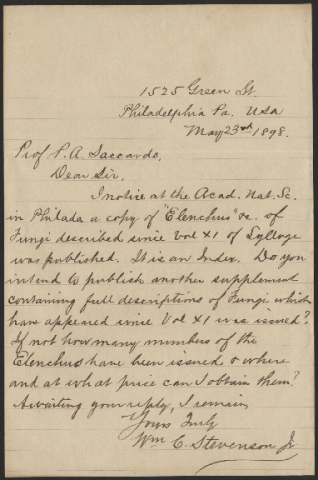 1525 Green St.
Philadelphia Pa. USA
May 23rd 1898.
Prof P. A. Saccardo,
Dear Sir,
I notice at the Acad. Nat. Sc.
in Philada a copy of "Elenchus" &c. of
Fungi described since vol XI of Sylloge
was published. It is an Index. Do you
intend to publish another supplement
containing full descriptions of Fungi which
have appeared since Vol XI was issued?
If not how many numbers of the
Elenchus have been issued & where
and at what price can I obtain them?
Awaiting your reply, I remain,
Yours Truly
Wm C. Stevenson Jr